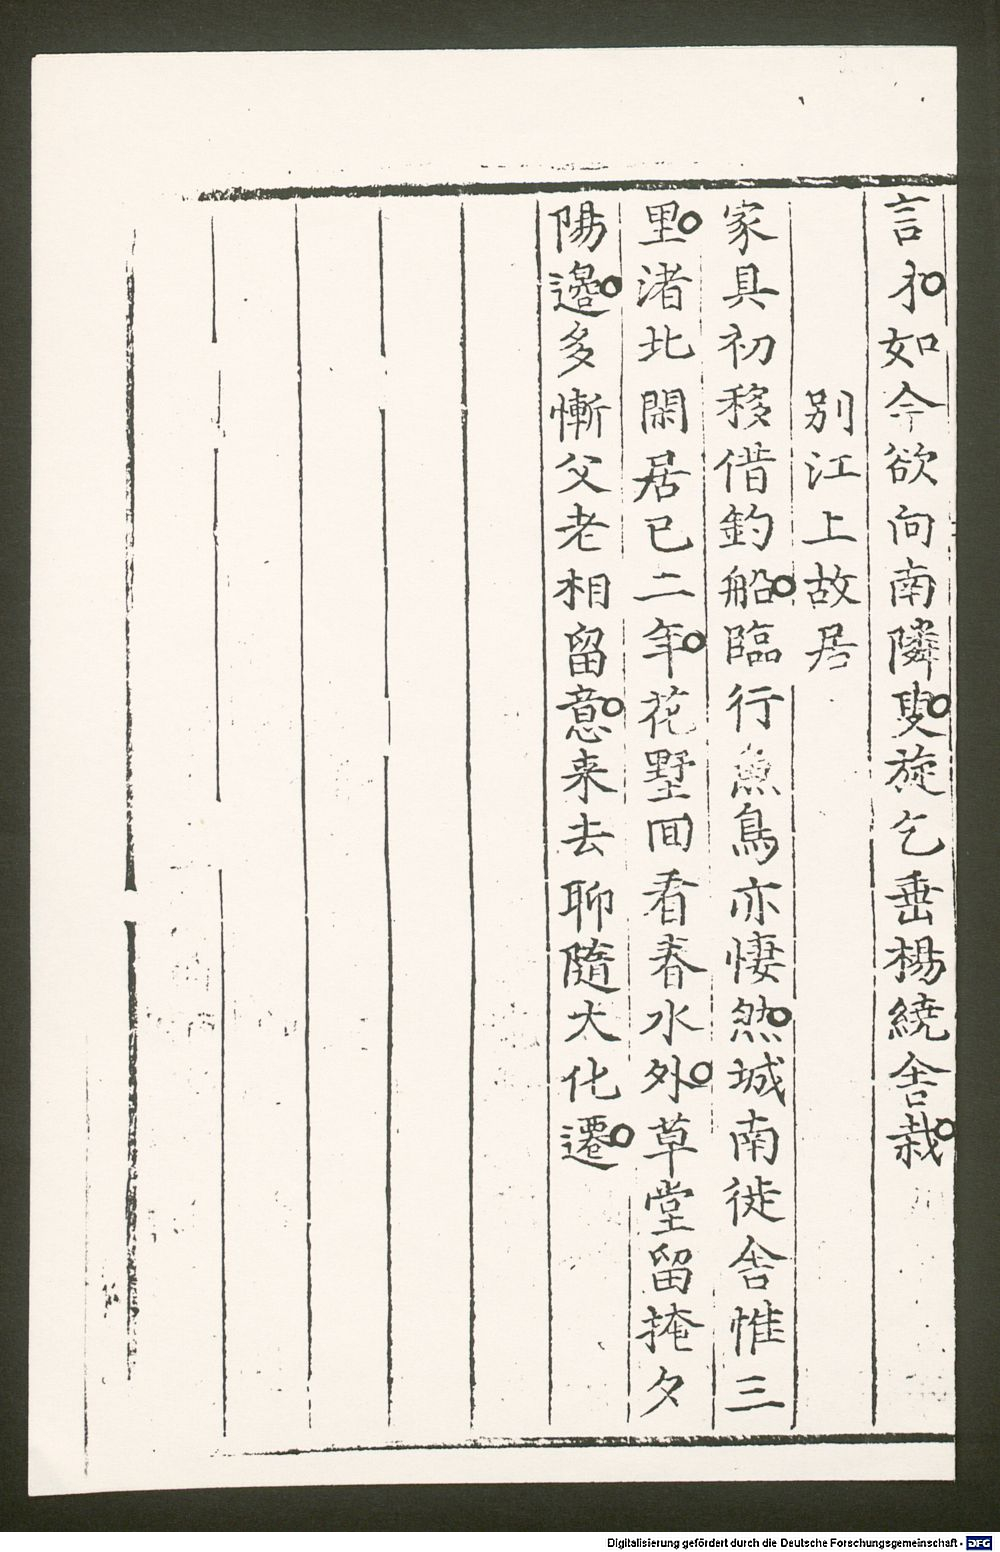 言才如今欲向南隣叟旋乞垂楊繞舎栽
別江上故居
家具初移借釣船臨行魚鳥亦悽然城南徙舎惟三
里渚北閑居已二年花墅回看春水外草堂留掩夕
陽邉多慚父老相留意来去聊隨大化遷
Digitalisierung gefördert durch die Deutsche Forschungsgemeinschaft - DFG